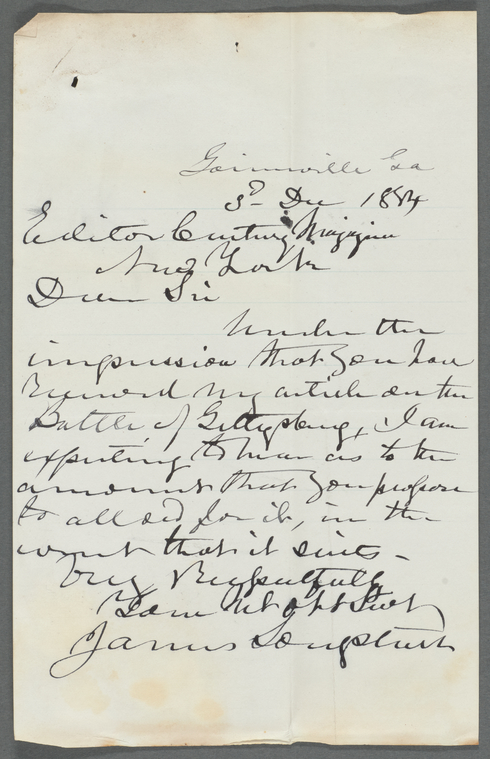 Gainesville Ga
3d Dec 1884
Editor Century Magazine
New York
Dear Sir
Under the
impression that you have
received my article on the
Battle of Gettysburg, I am
expecting to hear as to the
amount that you propose
to allow for it, in the
event that it suits -
Very Respectfully
Your Mt Obt Svt
James Longstreet